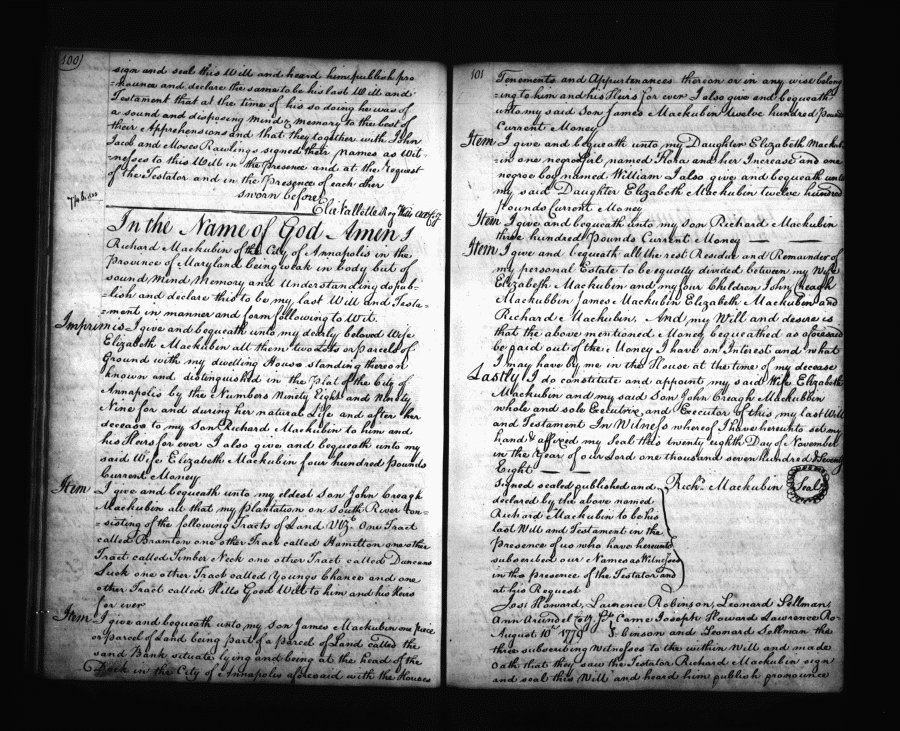 100
sign and seal this Will and heard him publish pro
=nounce and declare the same to be his last Will and
Testament that at the time of his so doing he was of
a sound and disposing mind & memory to the best of
their Apprehensions and that they together with John
Jacob and Moses Rawlings signed their names as Wit-
nesses to this Will in the presence and at the request
of the Testator and in the Presence of each other
Sworn before
Ela Vallette Reg Wills
In the Name of God Amen I
Richard Mackubin of the City of Annapolis in the
Province of Maryland being weak in body but of
sound Mind Memory and Understanding do pub-
lish and declare this to be my last Will and Testa-
=ment in manner and form following to Wit.
Imprimis I give and bequeath unto my dearly beloved Wife
Elizabeth Mackubin all them two Lots or parcels of
Ground with my dwelling House standing thereon
known and distinguished in the Plat of the City of
Annapolis by the Numbers Ninety Eight and Ninety
Nine for and during her natural Life and after her
decease to my Son Richard Mackubin to him and
his Heirs for ever I also give and bequeath unto my
said Wife Elizabeth Mackubin four hundred Pounds
Current Money
Item I give and bequeath unto my eldest Son John Creagh
Mackubin all that my plantation on South River con-
sisting of the following Tracts of Land Vizt. One Tract
called Bramton one other Tract called Hamilton one other
Tract called Timber Neck one other Tract called Duncans
Luck one other Tract called Youngs Chance and one
other Tract called Hills Good Will to him and his Heirs
for ever
Item I give and bequeath unto my Son James Mackubin one piece
or parcel of Land being part of a parcel of Land called the
sand Bank situate lying and being at the head of the
Dock in the City of Annapolis aforesaid with the Houses
101
Tenements and Appurtenances thereon or in any wise belong
=ing to him and his Heirs for ever I also give and bequeath
unto my said Son James Mackubin twelve hundred Pounds
Current Money
Item I give and bequeath unto my Daughter Elizabeth Mackub-
in one negro girl named Flora and her Increase and one
negroe boy named William I also give and bequeath unto
my said Daughter Elizabeth Mackubin twelve hundred
Pounds Current Money
Item I give and bequeath unto my son Richard Mackubin
three hundred Pounds Current Money
Item I give and bequeath all the rest Residue and Remainder of
my personal Estate to be equally divided between my Wife
Elizabeth Mackubin and my four Children John Creagh
Mackubbin James Mackubin Elizabeth Mackubin and
Richard Mackubin. And my Will and desire is
that the above mentioned Money bequeathed as aforesaid
be paid out of the Money I have on Interest and what
I may have by me in the House at the time of my decease
Lastly I do constitute and appoint my said Wife Elizabeth
Mackubin and my said Son John Creagh Mackubbin
whole and sole Executrix and Executor of this my last Will
and Testament In Witness whereof I have hereunto set my
hand & affixed my Seal this twenty eighth Day of November
in the Year of our Lord one thousand seven hundred & Seventy
Eight
Signed sealed published and
declared by the above named
Richard Mackubin to be his
last Will and Testament in the
Presence of us who have hereunto
subscribed our Names as Witnesses
in the presence of the Testator and
at his Request
Richd. Mackubin Seal
Josi Howard, Lawrence Robinson, Leonard Sellman
Ann Arundel Coty Sct. Came Joseph Howard Lawrence Ro-
August 10th 1779 binson and Leonard Sellman the
three subscribing Witnesses to the within Will and made
Oath that they saw the Testator Richard Mackubin sign
and seal this Will and heard him publish pronounce